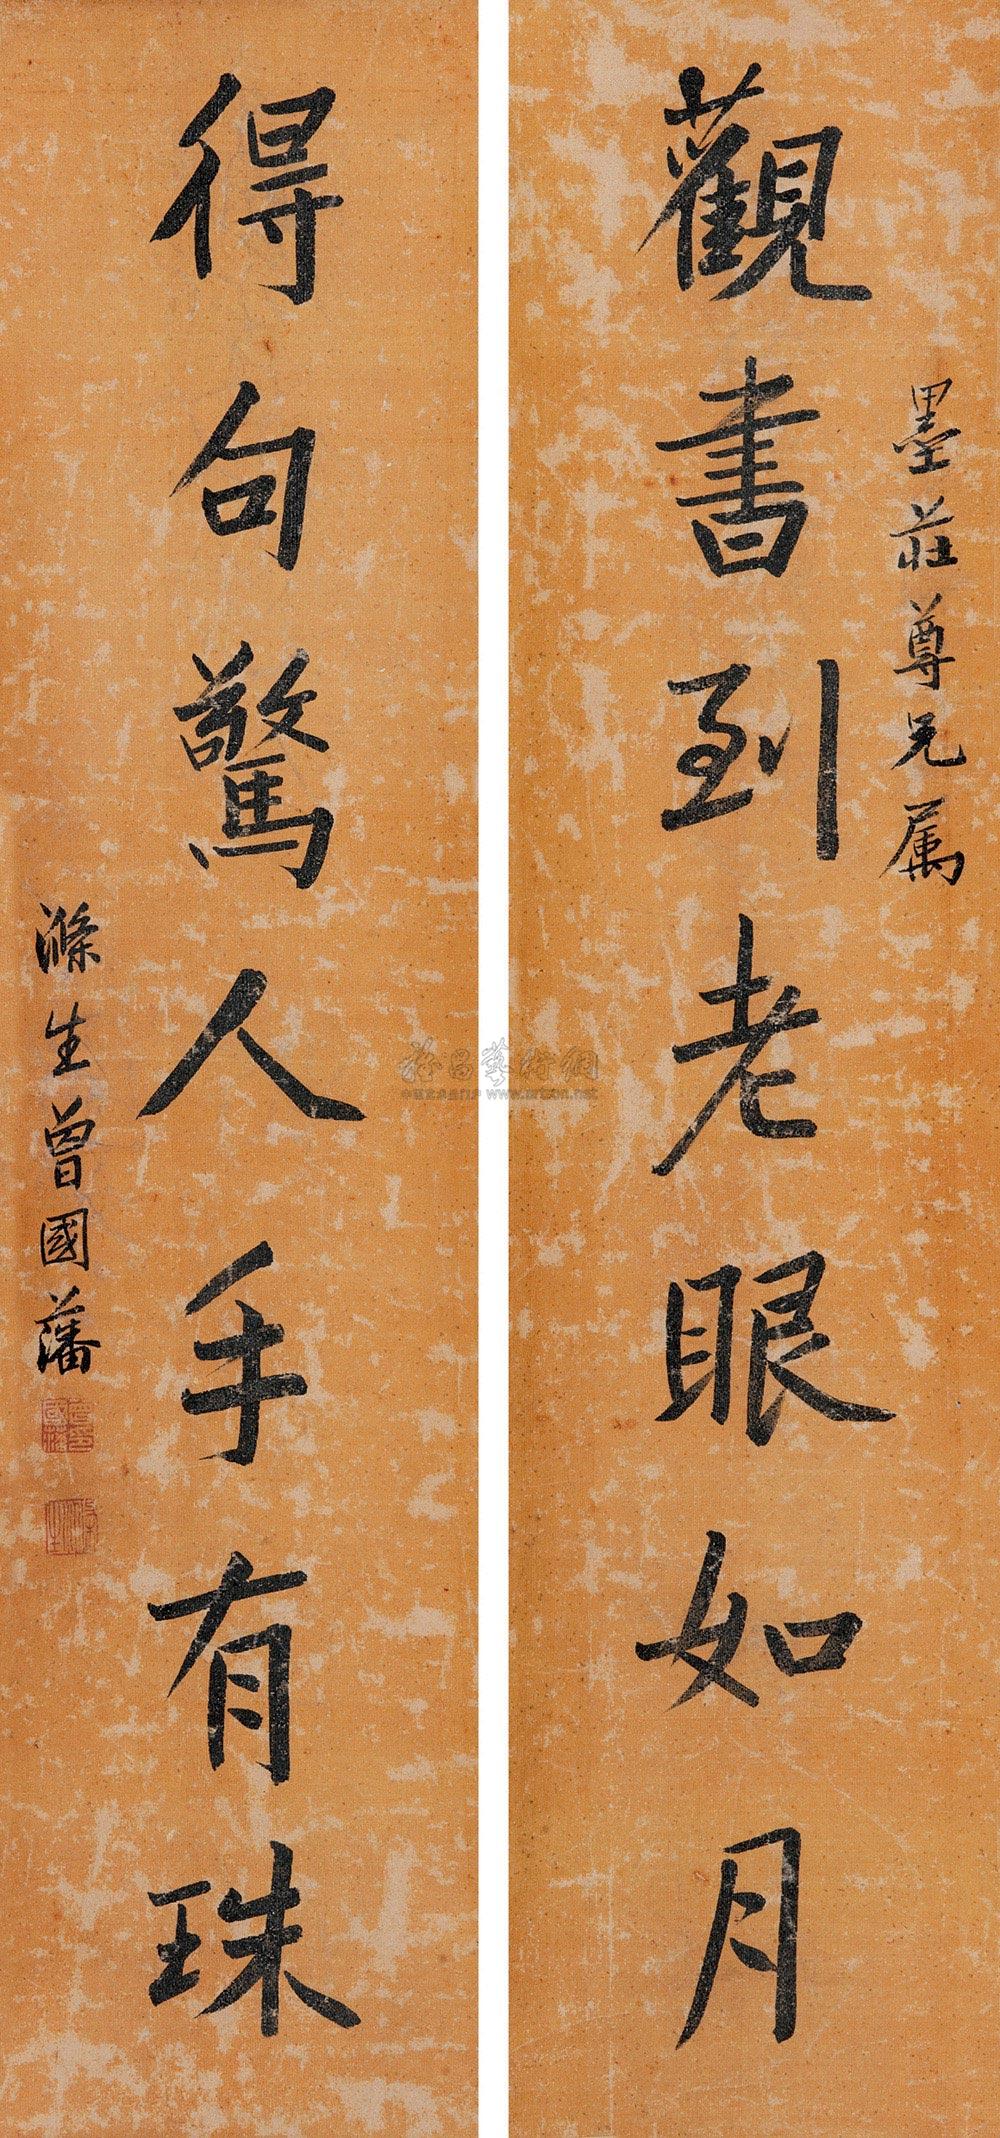 觀書到老眼如月
墨莊尊兄属
得句驚人手有珠
滌生曾國藩
www.artxun.net